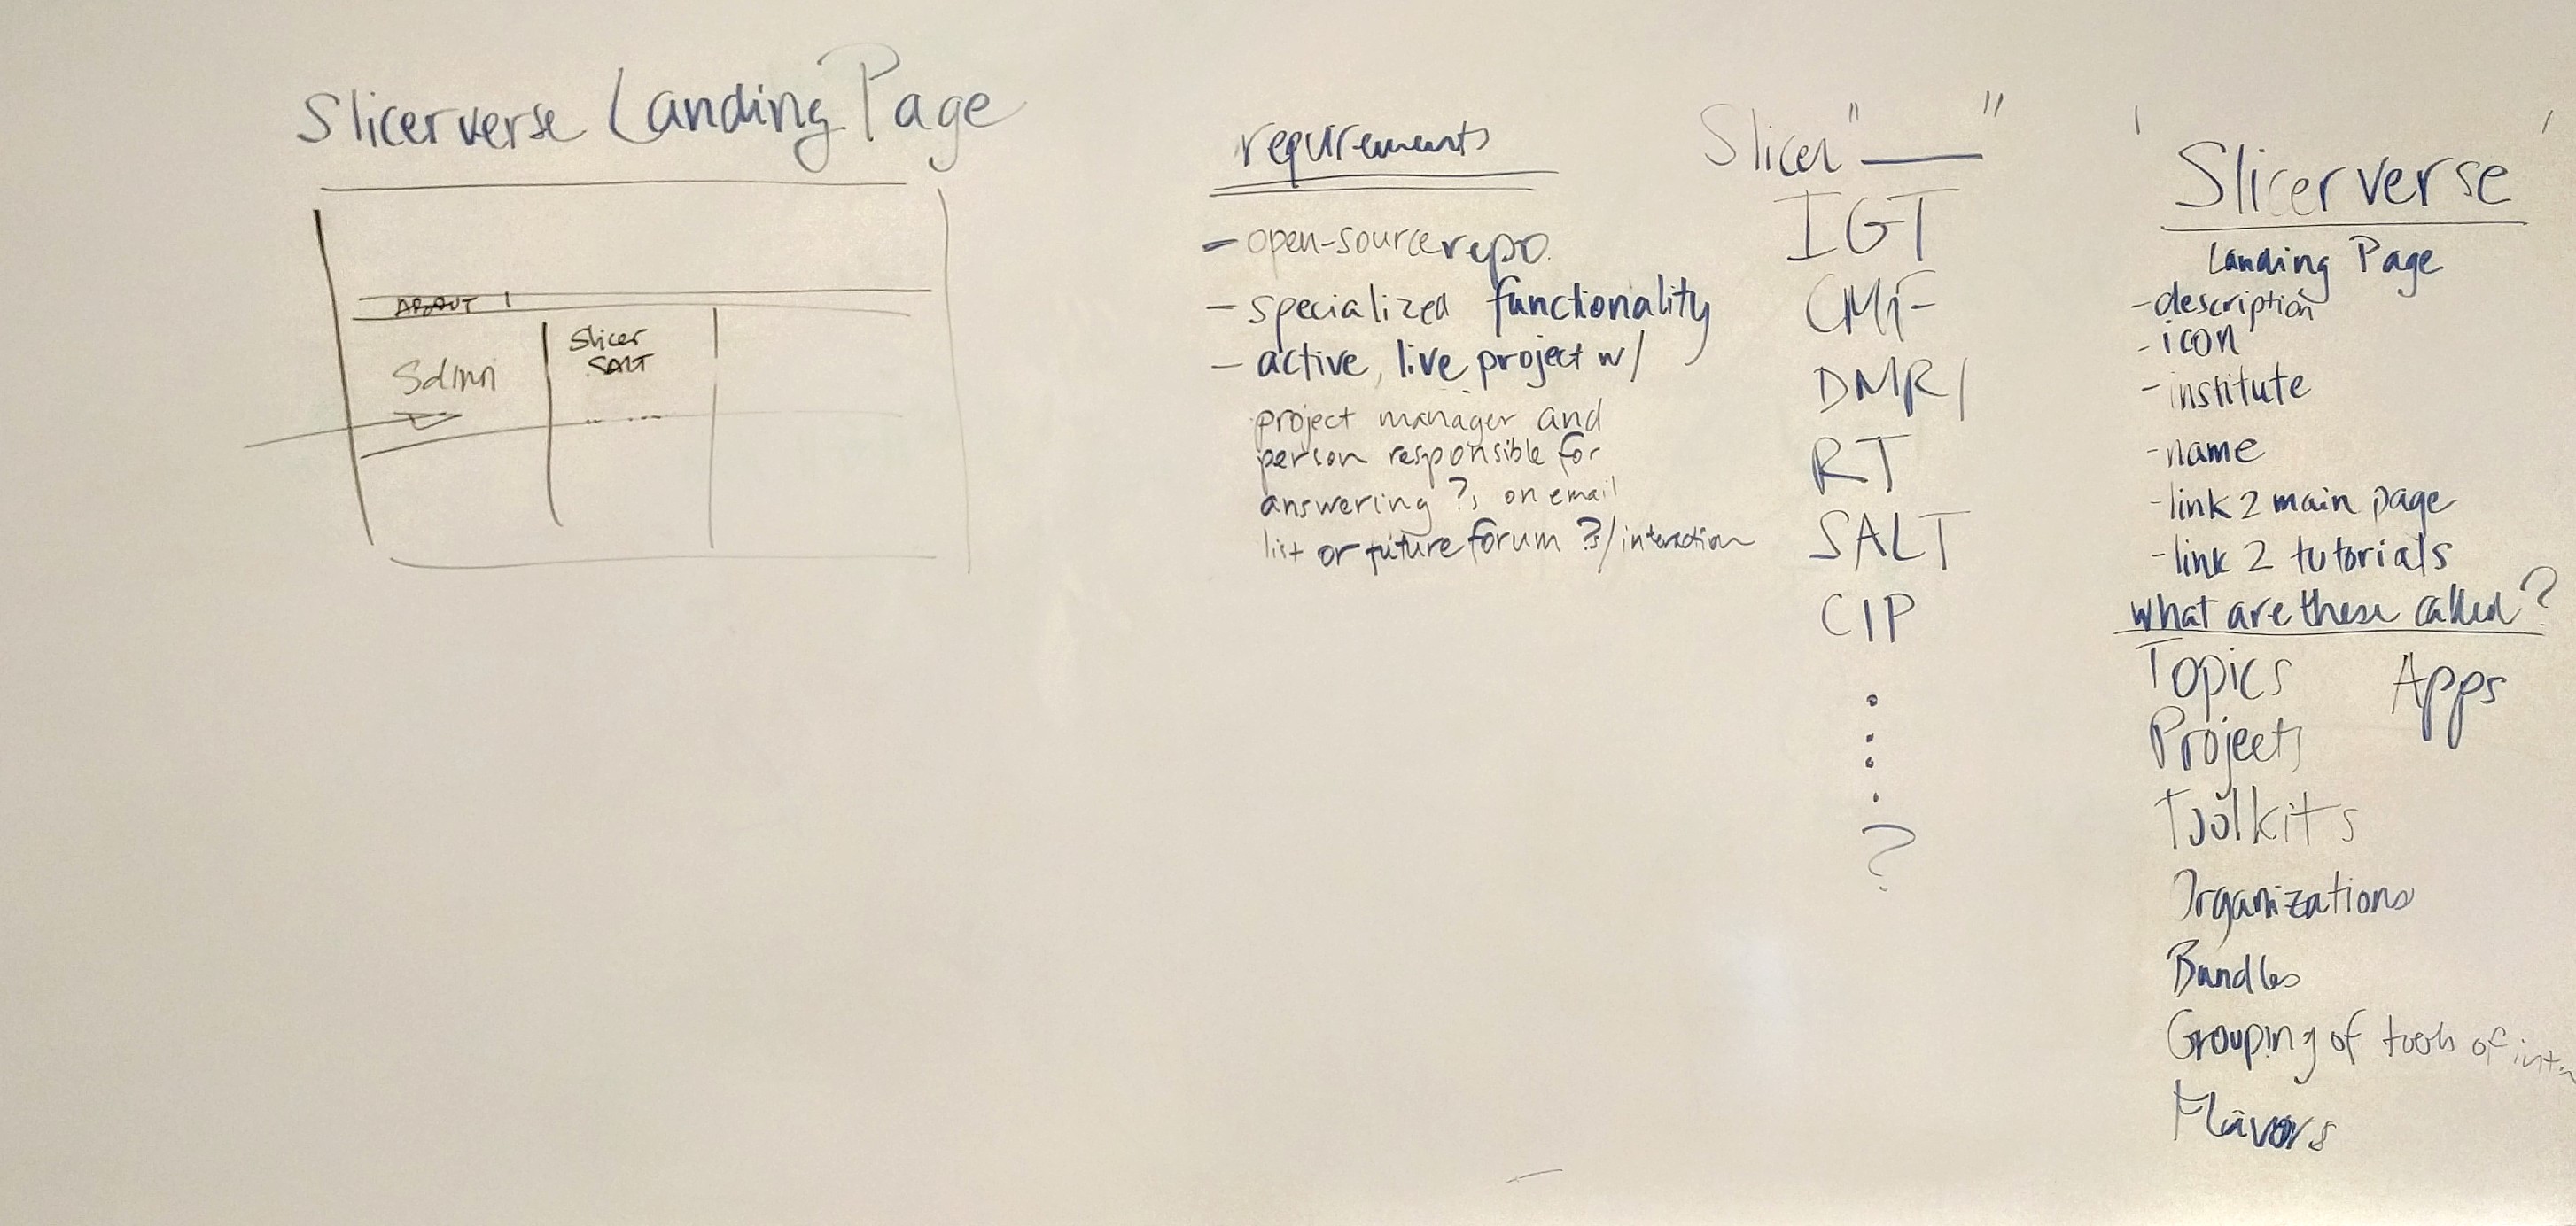 Slicerverse Landing Page
ABOUT
Sdmri
Slicer
SALT
requirements
- open-source repo.
- specialized functionality
- active, live project w/
project manager and
person responsible for
answering ?s on email
list or future forum ?s/interaction
Slicer "___"
IGT
CMF
DMRI
RT
SALT
CIP
?
' Slicerverse '
Landing Page
- description
- icon
- institute
- name
- link 2 main page
- link 2 tutorials
what are these called?
Topics Apps
Projects
Toolkits
Organizations
Bundles
Grouping of tools of
Flavors